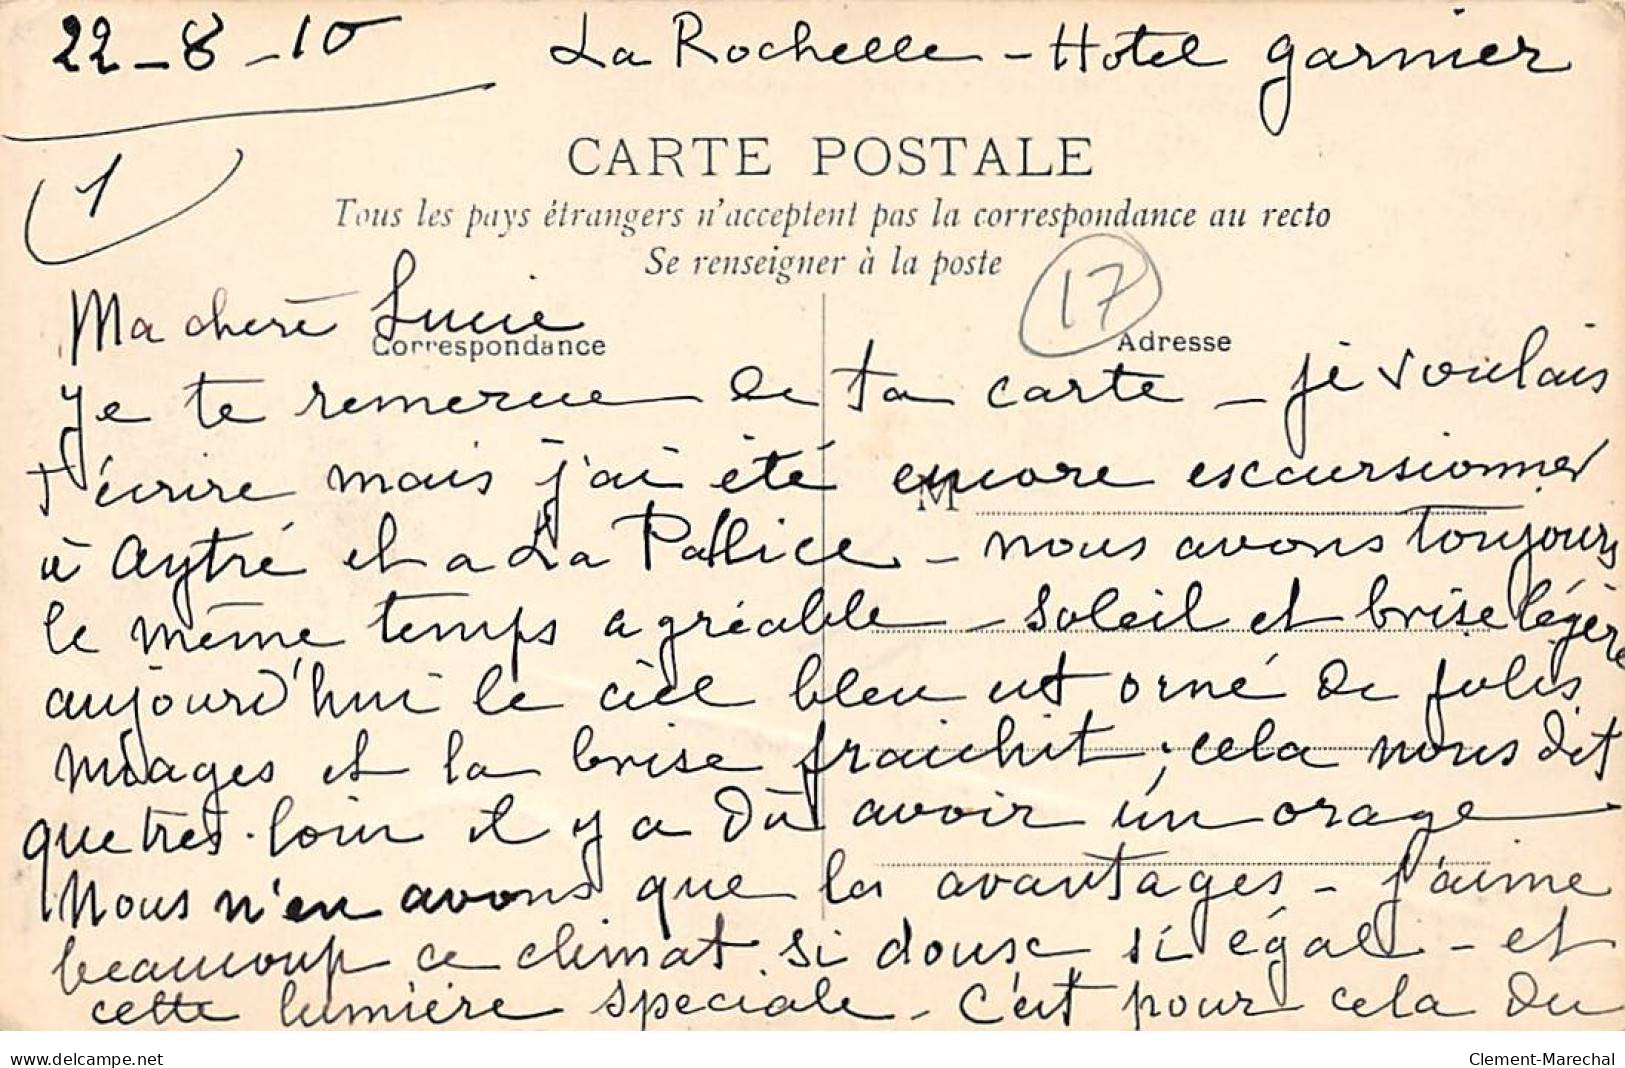 22-8-10 La Rochelle - Hotel garnier
1
CARTE POSTALE
Tous les pays étrangers n'acceptent pas la correspondance au recto
Se renseigner à la poste
17
Ma chère Lucie
Correspondance
Adresse
je te remercie de ta carte - je voulais
M
t'écrire mais j'ai été encore excursionner
à Aytré et a La Pallice - nous avons toujours
le même temps agréable - soleil et brise légère
aujourd'hui le ciel bleu est orné de jolis
nuages et la brise fraichit ; cela nous dit
que très loin il y a dû avoir un orage
Nous n'en avons que les avantages - J'aime
beaucoup ce climat si doux si égal - et
cette lumière spéciale - C'est pour cela du
www.delcampe.net
Clement-Marechal